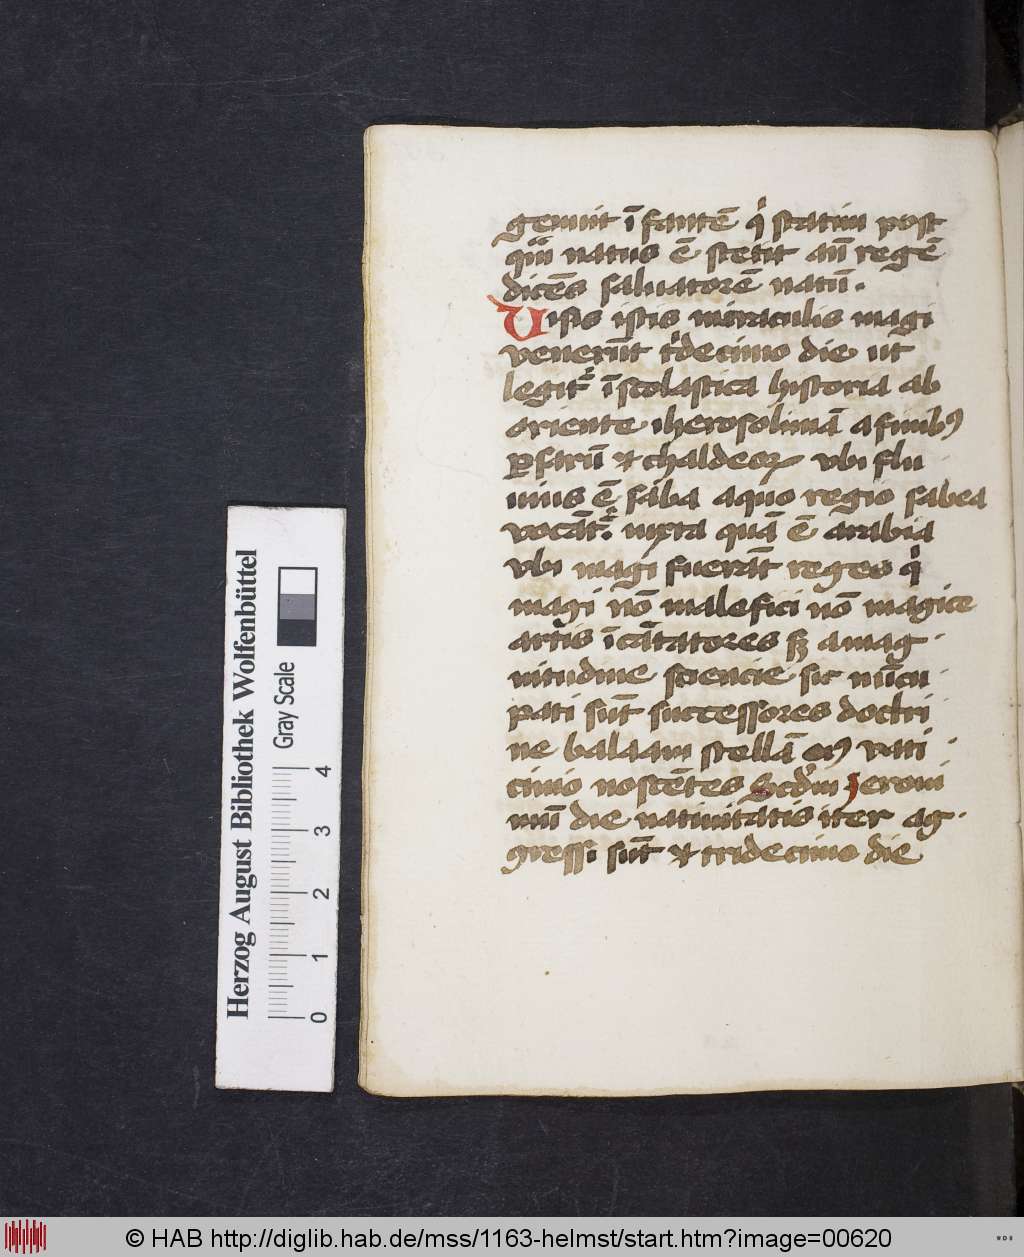 genuit ī fantē qͥ statim post
qͫ natus ē stetit añ regē
dicēs saluatorē natū.
Uisis istis miraculis magi
venerūt tͥdecimo die ut
legitᷣ ī scolastica historia ab
oriente iherosolimā a finibꝰ
ꝑsarū ⁊ chaldeoꝝ vbi flu
uius ē saba a quo regio sabea
vocātᷣ. iuxta quā ē arabia
vbi magi fuerāt reges qͥ
magi nō malefici nō magice
artis īcātatores sꝫ a mag
nitudine sciencie sic nūcu
pati sūt successores doctri
ne balaam stellā eiꝰ vati
cinio noscētes Scdͫm Jeroni
mū die natiuitatis iter ag
gressi sūt ⁊ tridecimo die
Herzog August Bibliothek Wolfenbüttel
Gray Scale
0 1 2 3 4
© HAB http://diglib.hab.de/mss/1163-helmst/start.htm?image=00620
WDB